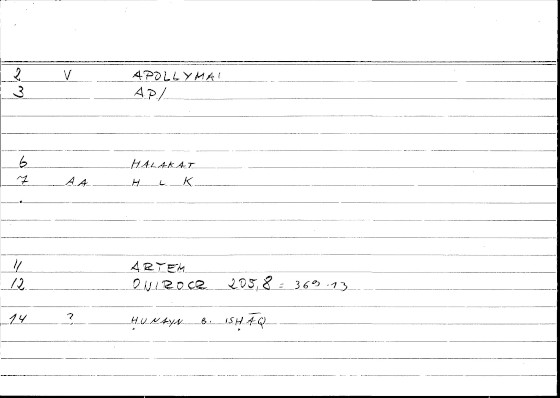 2 V APOLLYMAI
3 AP/
6 HALAKAT
7 AA H L K
11 ARTEM
12 ONIROCR 205,8 = 369.13
14 ? ḤUNAYN B. ISḤĀQ